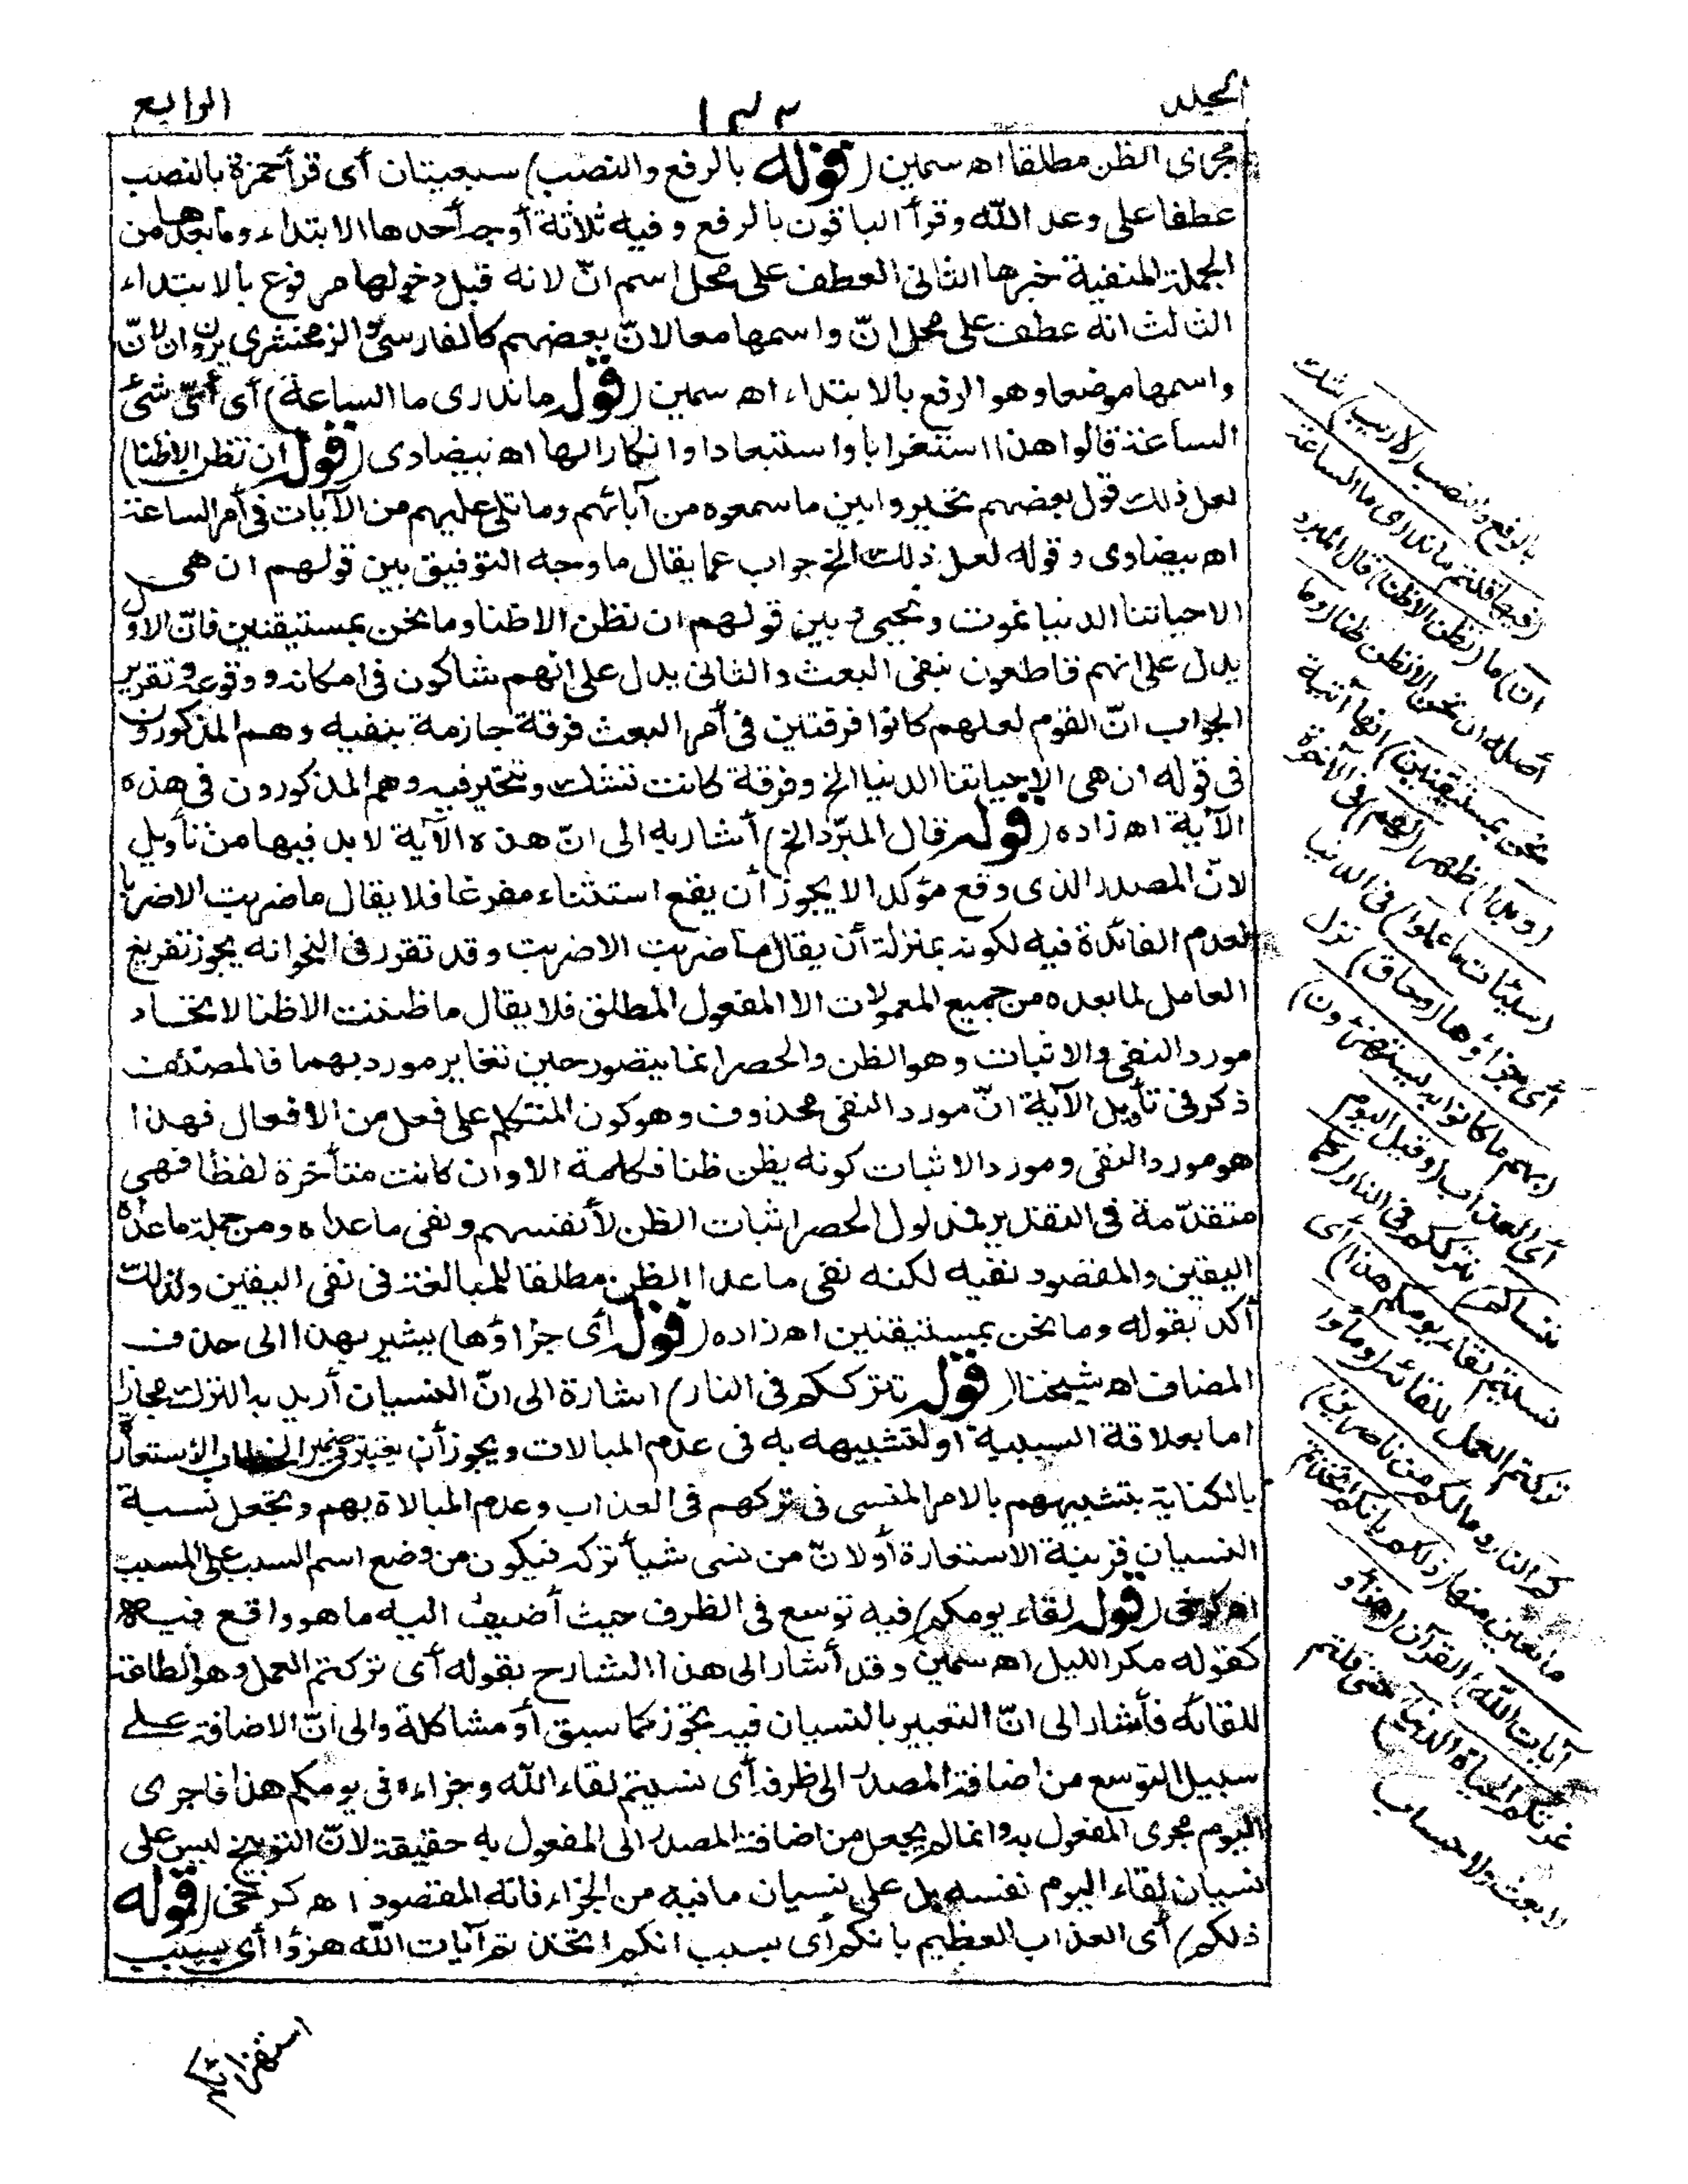 المجلد
١٣٢
الرابع
مجرى الظن مطلقا اه سمين (قوله بالرفع والنصب) سبعيتان أى قرأ حمزة بالنصب
عطفا على وعد الله وقرأ الباقون بالرفع وفيه ثلاثة أوجه أحدها الابتداء وما بعدها من
الجملة المنفية خبرها الثانى العطف على محل اسم انّ لانه قبل دخولها مرفوع بالابتداء
الثالث انه عطف على محل انّ واسمها معا لانّ بعضهم كالفارسى والزمخشرى يرون ان لانّ
واسمها موضعا وهو الرفع بالابتداء اه سمين (قوله ما ندرى ما الساعة) أى أىّ شئ
الساعة قالوا هذا استغرابا واستبعادا وانكارا لها اه بيضاوى (قوله ان نظن الاظنا)
لعل ذلك قول بعضهم تحيروا بين ما سمعوه من آبائهم وما تلى عليهم من الآيات فى أمر الساعة
اه بيضاوى وقوله لعل ذلك الخ جواب عما يقال ما وجه التوفيق بين قولهم ان هى
الاحياتنا الدنيا نموت ونحيى وبين قولهم ان نظن الاظنا وما نحن بمستيقنين فانّ الاوّل
يدل على انهم قاطعون بنفى البعث والثانى يدل على انهم شاكون فى امكانه ووقوعه وتقرير
الجواب انّ القوم لعلهم كانوا فرقتين فى أمر البعث فرقة جازمة بنفيه وهم المذكورون
فى قوله ان هى الاحياتنا الدنيا الخ وفرقة كانت تشك وتتحير فيه وهم المذكورون فى هذه
الآية اه زاده (قوله قال المبرّد الخ) أشار به الى انّ هذه الآية لا بد فيها من تأويل
لانّ المصدر الذى وقع مؤكدا لا يجوز أن يقع استثناء مفرغا فلا يقال ما ضربت الا ضربا
لعدم الفائدة فيه لكونه بمنزلة أن يقال ما ضربت الا ضربت وقد تقرر فى النحو انه يجوز تفريغ
العامل لما بعده من جميع المعمولات الا المفعول المطلق فلا يقال ما ظننت الاظنا لاتحاد
مورد النفى والاثبات وهو الظن والحصر انما يتصور حين تغاير مورديهما فالمصنف
ذكر فى تأويل الآية انّ مورد النفى محذوف وهو كون المتكلم على فعل من الافعال فهذا
هو مورد النفى ومورد الاثبات كونه يظن ظنا فكلمة الا وان كانت متأخرة لفظا فهى
متقدّمة فى التقدير فمدلول الحصر اثبات الظن لأنفسهم ونفى ما عداه ومن جملة ما عداه
اليقين والمقصود نفيه لكنه نفى ما عدا الظن مطلقا للمبالغة فى نفى اليقين ولذلك
أكد بقوله وما نحن بمستيقنين اه زاده (قوله أى جزاؤها) يشير بهذا الى حذف
المضاف اه شيخنا (قوله نترككم فى النار) اشارة الى انّ النسيان أريد به الترك مجازا
اما بعلاقة السببية أو لتشبيهه به فى عدم المبالات ويجوز أن يعتبر فى ضمير الخطاب الاستعارة
بالكناية بتشبيههم بالامر المنسى فى تركهم فى العذاب وعدم المبالاة بهم وتجعل نسبة
النسيان قرينة الاستعارة أو لانّ من نسى شيأ تركه فيكون من وضع اسم السبب على المسبب
اه كرخى (قوله لقاء يومكم) فيه توسع فى الظرف حيث أضيف اليه ما هو واقع فيه
كقوله مكر الليل اه سمين وقد أشار الى هذا الشارح بقوله أى تركتم العمل وهو الطاعة
للقائه فأشار الى انّ التعبير بالنسيان فيه تجوز كما سبق أو مشاكلة والى انّ الاضافة على
سبيل التوسع من اضافة المصدر الى ظرفه أى نسيتم لقاء الله وجزاءه فى يومكم هذا فاجرى
اليوم مجرى المفعول به وانما لم يجعل من اضافة المصدر الى المفعول به حقيقة لانّ التوبيخ ليس على
نسيان لقاء اليوم نفسه بل على نسيان ما فيه من الجزاء فانه المقصود اه كرخى (قوله
ذلكم) أى العذاب العظيم بانكم أى بسبب انكم اتخذتم آيات الله هزؤا أى بسبب
استهزائكم
بالرفع والنصب (لاريب) شك
(فيها قلتم ما ندرى ما الساعة
ان) ما (نظن الاظنا) قال المبرد
أصله ان نحن الا نظن ظنا (وما
نحن بمستيقنين) انها آتية
(وبدا) ظهر (لهم) فى الآخرة
(سيئات ما عملوا) فى الدنيا
أى جزاؤها (وحاق) نزل
(بهم ما كانوا به يستهزؤن)
أى العذاب (وقيل اليوم
ننساكم) نترككم فى النار (كما
نسيتم لقاء يومكم هذا) أى
تركتم العمل للقائه (ومأوا
كم النار وما لكم من ناصرين)
مانعين منها (ذلكم بانكم اتخذتم
آيات الله) القرآن (هزؤا و
غرتكم الحياة الدنيا) حتى قلتم
لا بعث ولا حساب